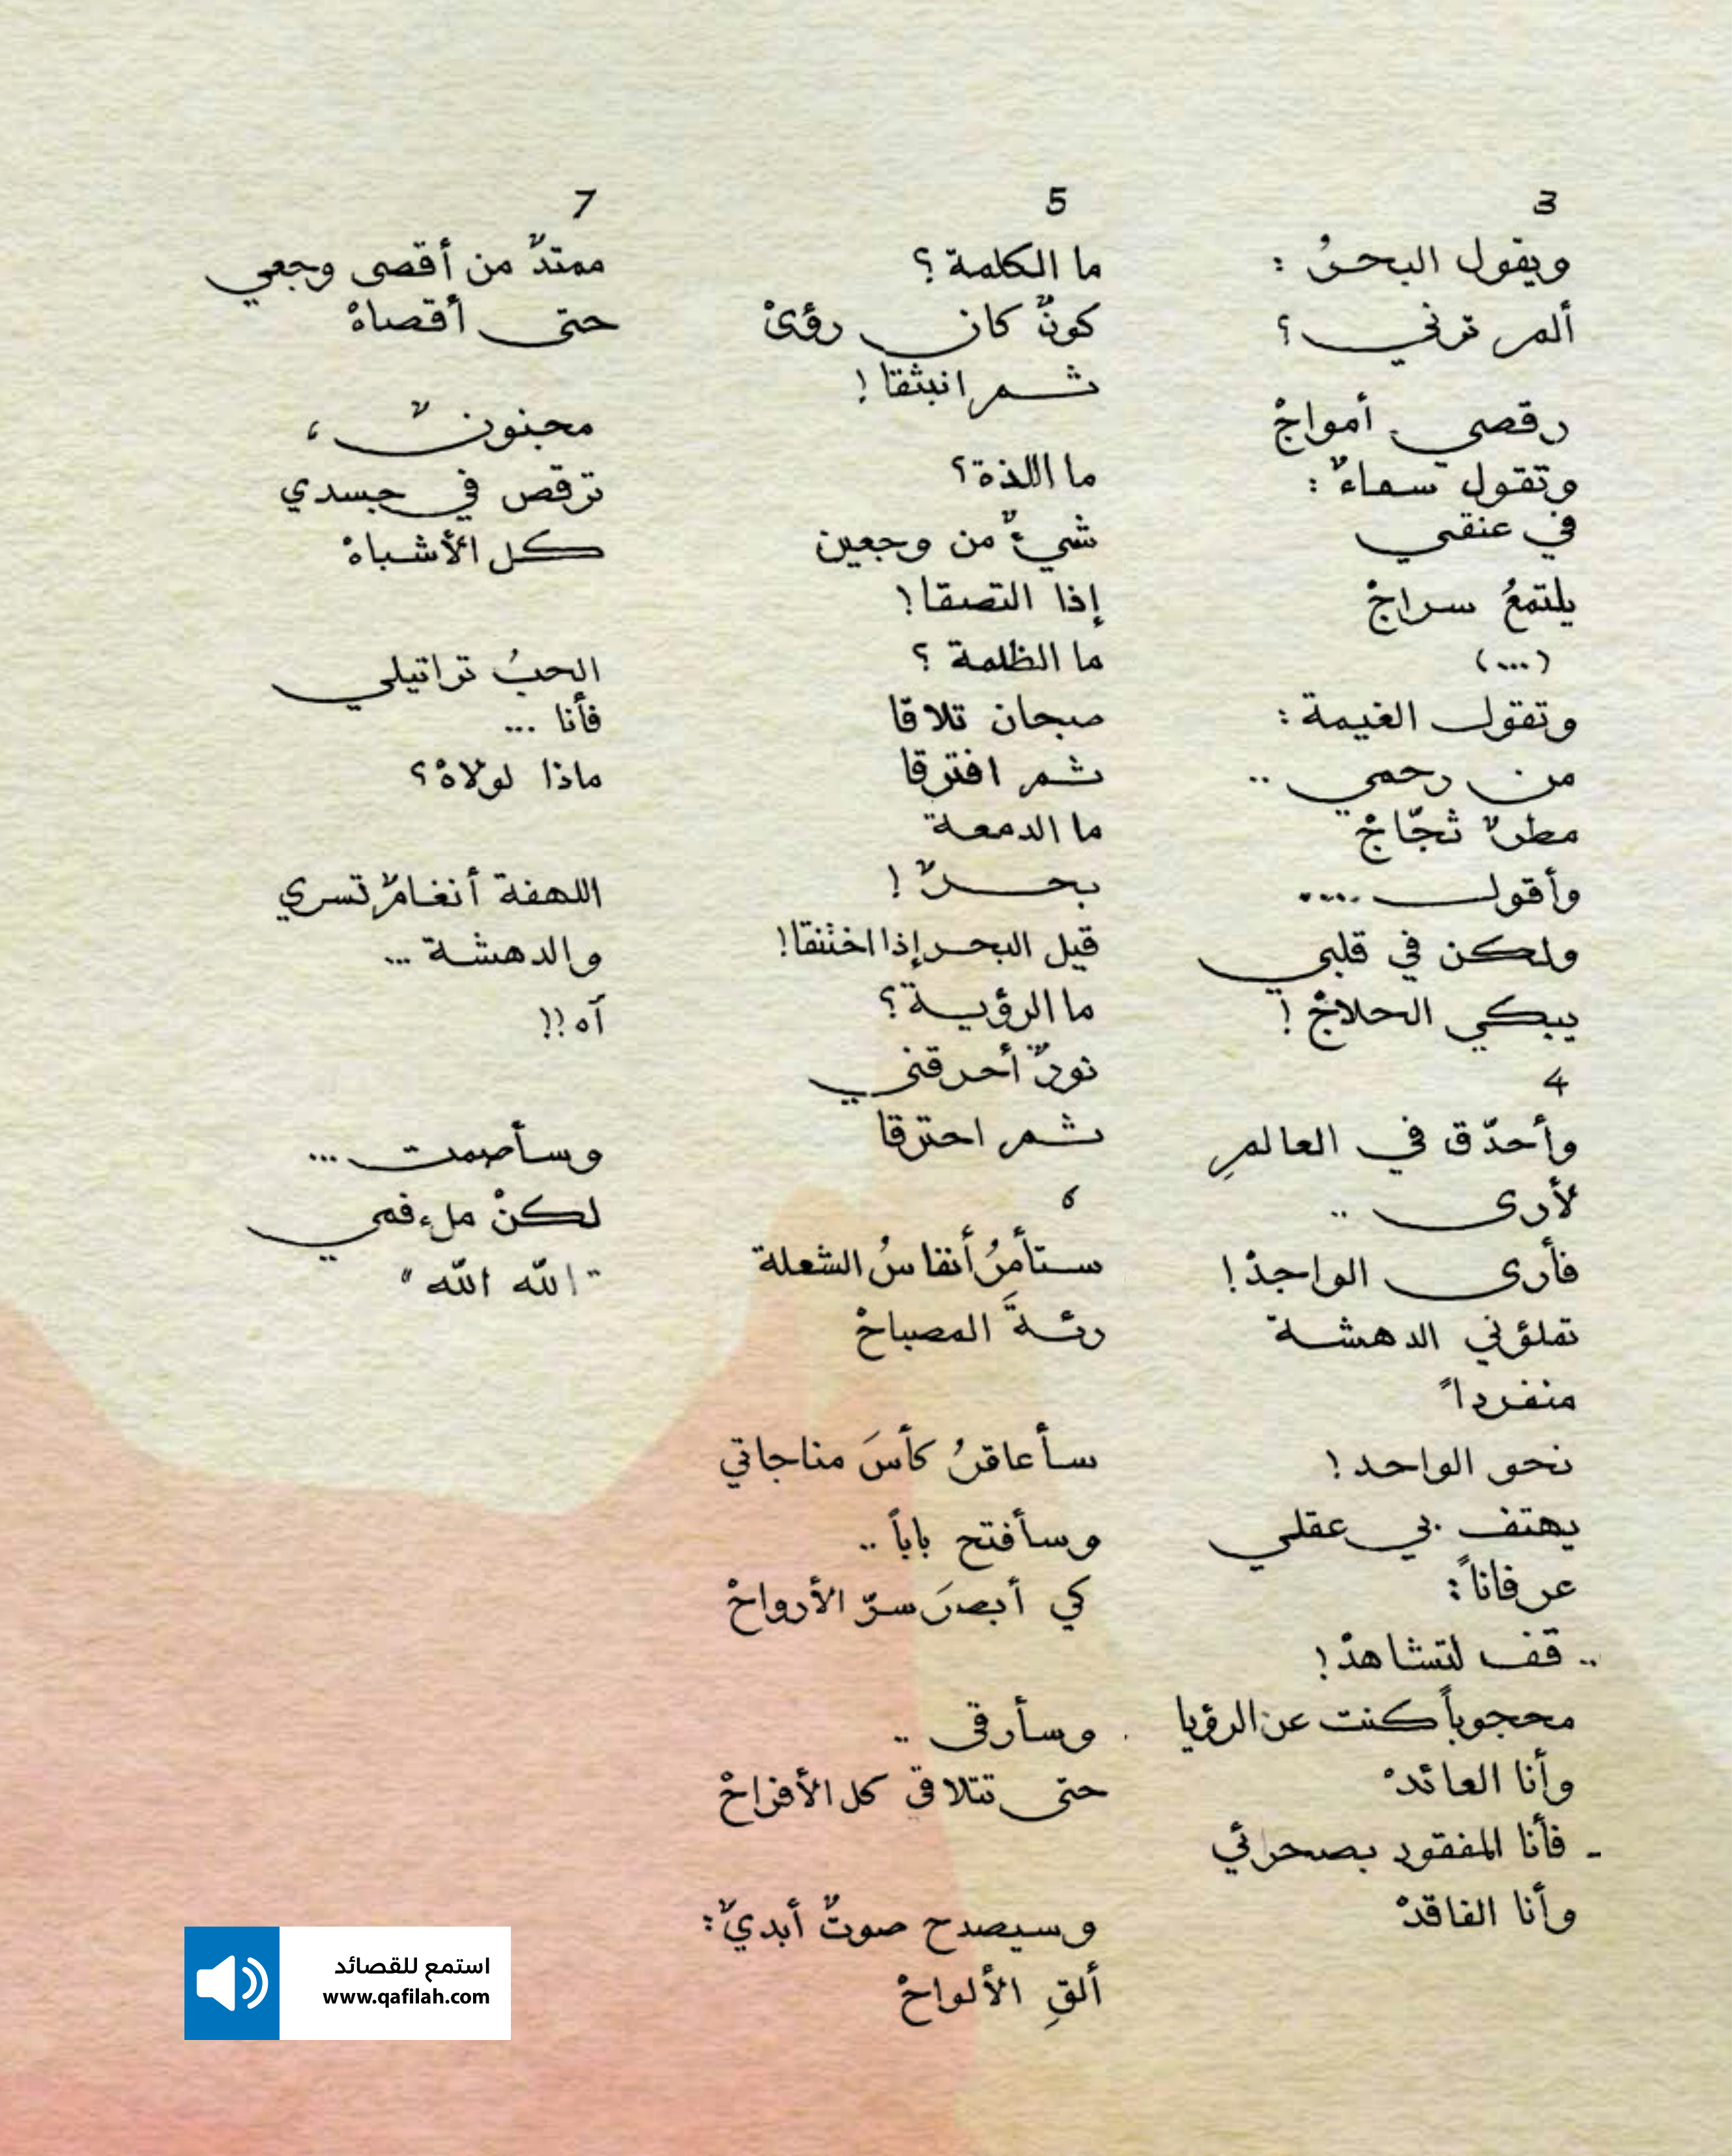 3
ويقول البحرُ :
ألم ترني ؟
رقصي أمواجْ
وتقول سماءٌ :
في عنقي
يلتمعُ سراجْ
(...)
وتقول الغيمة :
من رحمي ..
مطرٌ ثجّاجْ
وأقول ....
ولكن في قلبي
يبكي الحلاجْ !
4
وأحدّق في العالمِ
لأرى ..
فأرى الواجدْ !
تملؤني الدهشة
منفرداً
نحو الواحد !
يهتف بي عقلي
عرفاناً :
.. قف لتشاهدْ !
محجوباً كنت عن الرؤيا
وأنا العائدْ
- فأنا المفقود بصحرائي
وأنا الفاقدْ
5
ما الكلمة ؟
كونٌ كان رؤىْ
ثم انبثقا !
ما اللذة ؟
شيءٌ من وجعين
إذا التصقا !
ما الظلمة ؟
صبحان تلاقا
ثم افترقا
ما الدمعة
بحرٌ !
قيل البحر إذا اختنقا !
ما الرؤية ؟
نورٌ أحرقني
ثم احترقا
6
ستأمرُ أنفاسُ الشعلة
رئةَ المصباحْ
سأعاقرُ كأسَ مناجاتي
وسأفتح باباً ..
كي أبصرَ سرّ الأرواحْ
وسأرقى ..
حتى تتلاقى كل الأفراحْ
وسيصدح صوتٌ أبديٌ :
ألقِ الألواحْ
7
ممتدٌ من أقصى وجعي
حتى أقصاهْ
مجنونٌ ،
ترقص في جسدي
كل الأشباهْ
الحبُ تراتيلي
فأنا ...
ماذا لولاهْ ؟
اللهفة أنغامٌ تسري
والدهشة ...
آه !!
وسأصمت ...
لكنْ ملء فمي
"الله الله"
استمع للقصائد
www.qafilah.com